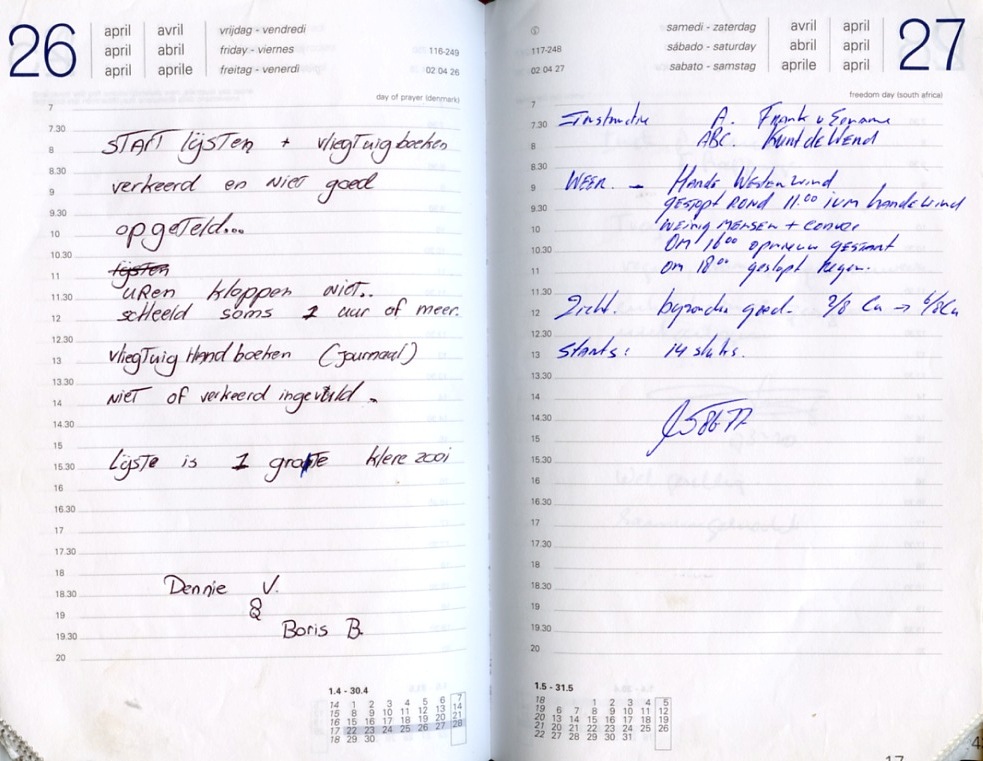 26
april avril vrijdag - vendredi
april abril friday - viernes 116-249
april aprile freitag - venerdì 02 04 26
day of prayer (denmark)
7
7.30
START lijsten + vliegtuigboeken
8
8.30
verkeerd en niet goed
9
9.30
opgeteld...
10
10.30
lijsten
11
uren kloppen niet..
11.30
scheeld soms 1 uur of meer.
12
12.30
vliegtuig Handboeken (journaal)
13
13.30
niet of verkeerd ingevuld
14
14.30
15
Lijste is 1 grote klere zooi
15.30
16
16.30
17
17.30
18
Dennie V.
18.30
&
19
Boris B.
19.30
20
1.4 - 30.4
14 1 2 3 4 5 6 7
15 8 9 10 11 12 13 14
16 15 16 17 18 19 20 21
17 22 23 24 25 26 27 28
18 29 30
samedi - zaterdag avril april 27
117-248 sábado - saturday abril april
02 04 27 sabato - samstag aprile april
freedom day (south africa)
7
7.30
Instructie A. Frank v
8
ABC. Ruud de Wend
8.30
9
WEER. - Harde Westenwind
9.30
gestopt rond 11.00 ivm harde wind
10
weinig mensen +
10.30
Om 1600 opnieuw gestart
11
om 1800 gestopt regen.
11.30
12
Zicht. bijzonder goed. 2/8 Cu → 6/8 Cu
12.30
13
Starts: 14 stuks.
13.30
14
14.30
15
15.30
16
16.30
17
17.30
18
18.30
19
19.30
20
1.5 - 31.5
18 1 2 3 4 5
19 6 7 8 9 10 11 12
20 13 14 15 16 17 18 19
21 20 21 22 23 24 25 26
22 27 28 29 30 31
17
4